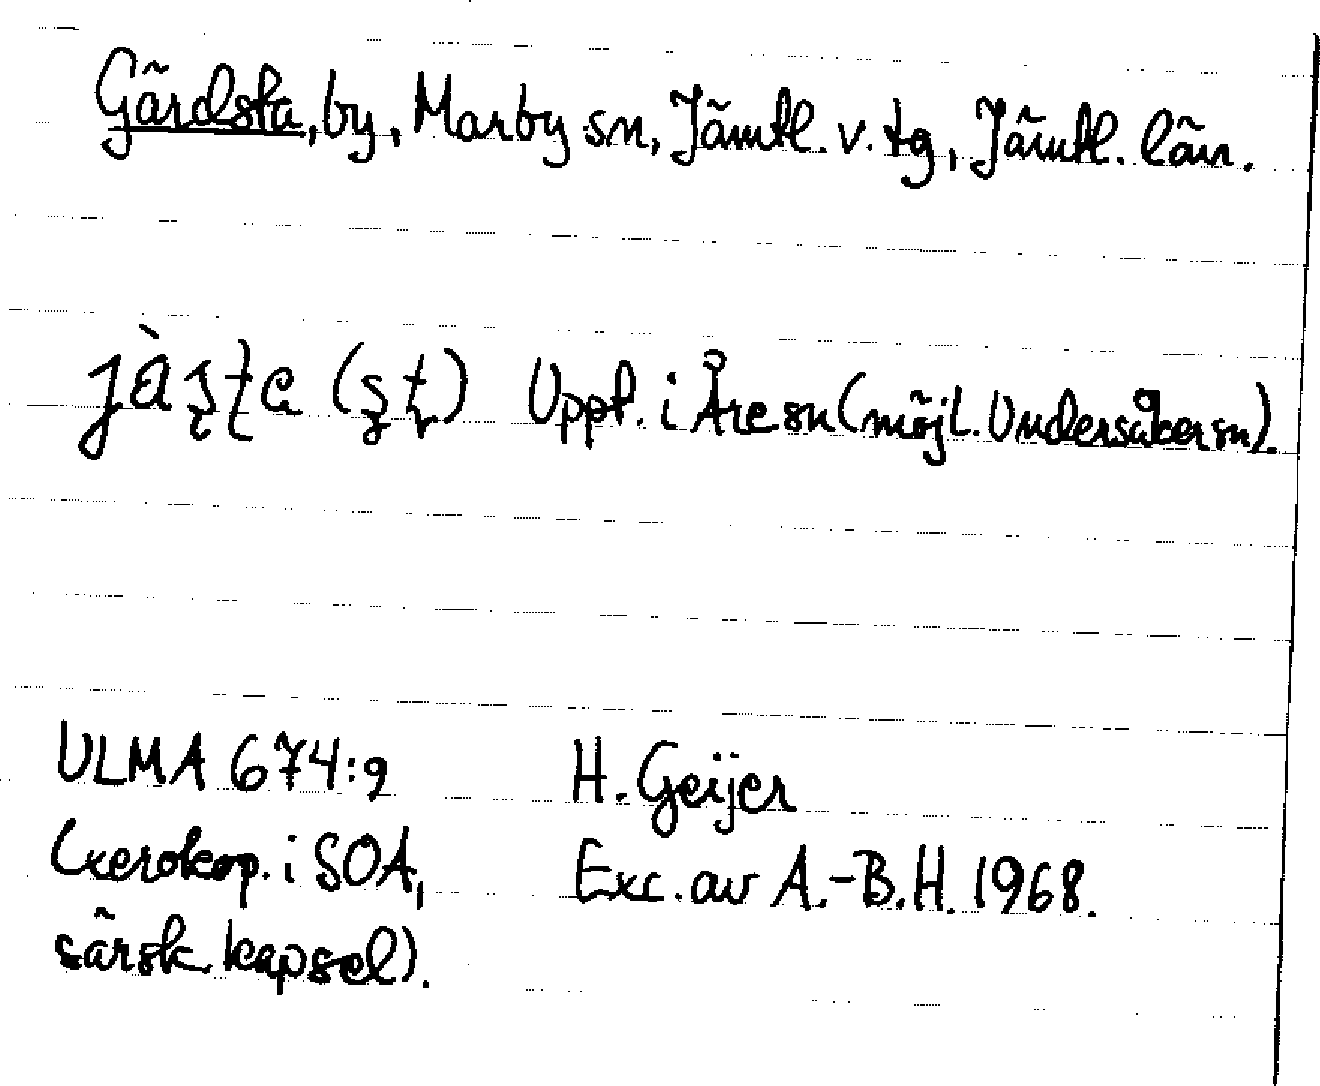 Gärdsta, by, Marby sn, Jämtl. v. tg, Jämtl. län.
jàʂʈa (ʂʈ) Uppt. i Åre sn (möjl. Undersåker sn).
ULMA 674:9 H. Geijer
(xerokop. i SOA, Exc. av A.-B.H. 1968.
särsk. kapsel).